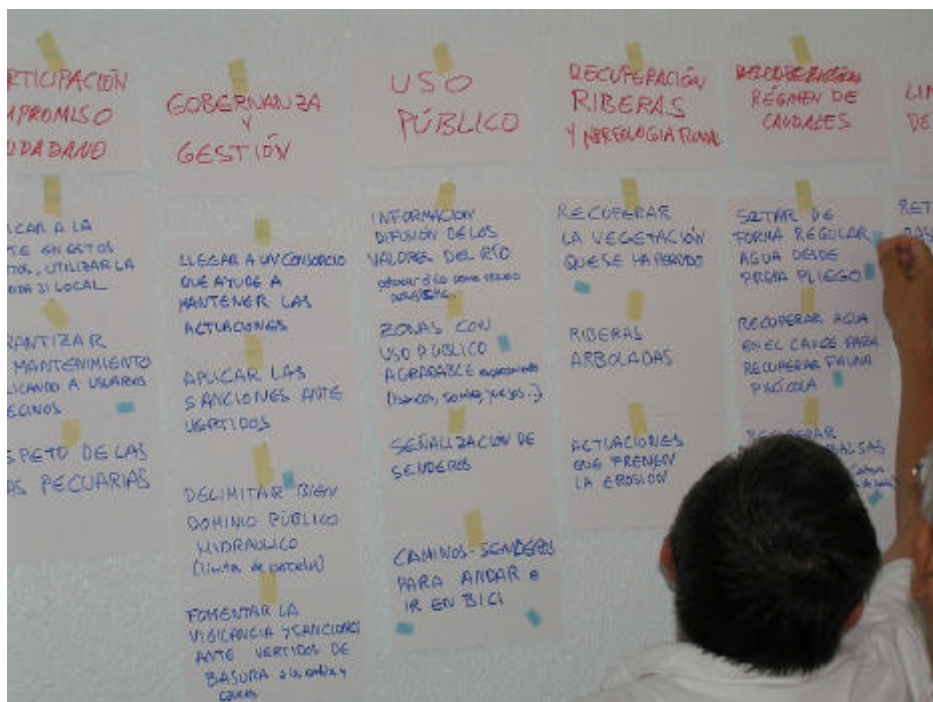 RTICIPACIÓN
MPROMISO
UDADANO
ICAR A LA
TE EN ESTOS
TOS, UTILIZAR LA
LOCAL
RANTIZAR
MANTENIMIENTO
LICANDO A USUARIOS
ECINOS
SPETO DE LAS
AS PECUARIAS
GOBERNANZA
Y
GESTIÓN
LLEGAR A UN CONSORCIO
QUE AYUDE A
MANTENER LAS
ACTUACIONES
APLICAR LAS
SANCIONES ANTE
VERTIDOS
DELIMITAR BIEN
DOMINIO PÚBLICO
HIDRAÚLICO
FOMENTAR LA
VIGILANCIA Y SANCIONES
ANTE VERTIDOS DE
BASURA
USO
PÚBLICO
INFORMACION
DIFUSIÓN DE LOS
VALORES DEL RÍO
ZONAS CON
USO PÚBLICO
AGRADABLE
(bancos, sombra, juegos..)
SEÑALIZACIÓN DE
SENDEROS
CAMINOS-SENDEROS
PARA ANDAR e
IR EN BICI
RECUPERACIÓN
RIBERAS
Y MORFOLOGIA FLUVIAL
RECUPERAR
LA VEGETACIÓN
QUE SE HA PERDIDO
RIBERAS
ARBOLADAS
ACTUACIONES
QUE FRENEN
LA EROSIÓN
RÉGIMEN DE
CAUDALES
SOLTAR DE
FORMA REGULAR
AGUA DESDE
PLIEGO
RECUPERAR AGUA
EN EL CAUCE PARA
RECUPERAR FAUNA
PISCÍCOLA
RECUPERAR
BALSAS
LIM
DE
RET
BAS